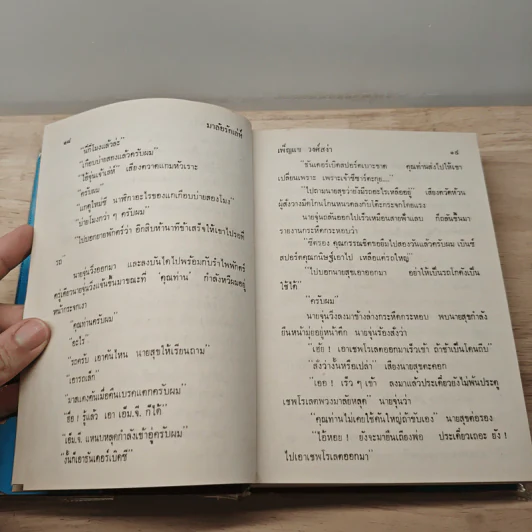 ๑๘
มาลัยรักแล่ฟ้
"นี่กี่โมงแล้วล่ะ"
"เกือบบ่ายสองแล้วครับผม"
"ไอ้จุ่นเจ้าเล่ห์" เสียงตวาดแถมหัวเราะ
"ครับผม"
"แกดูใหม่ซิ นาฬิกาอะไรของแกเกือบบ่ายสองโมง"
"บ่ายโมงกว่า ๆ ครับผม"
"ไปบอกยายพักตร์ว่า อีกสิบห้านาทีข้าเสร็จให้เขาไปรอที่
รถ"
นายจุ่นวิ่งออกมา และลงบันไดไปพร้อมกับรำไพพักตร์
ครู่เดียวนายจุ่นวิ่งแจ้นขึ้นมาขณะที่ 'คุณท่าน' กำลังหวีผมอยู่
หน้ากระจกเงา
"คุณท่านครับผม"
"อะไร"
"รถครับ เอาคันไหน นายสุขให้เรียนถาม"
"เอารถเล็ก"
"มาสแตงคันเมื่อคืนเบรคแตกครับผม"
"ฮื้อ ! รู้แล้ว เอา เอ็ม.จี. ก็ได้"
"เอ็ม.จี. แหนบหลุดกำลังเข้าอู่ครับผม"
"งั้นก็เอาธันเดอร์เบิดซี"
เพ็ญแข วงศ์สง่า
๑๙
"ธันเดอร์เบิดสปอร์ตเบาะขาด คุณท่านส่งไปให้เขา
เปลี่ยนเพราะ เพราะเจ้าซีซาร์ตะกุย..."
"ไปถามนายสุขว่ายังมีรถอะไรเหลืออยู่" เสียงตวัดห้วน
ผู้สั่งวางมือโกนโกนหนวดลงกับโต๊ะกระจกโดยแรง
นายจุ่นถลันออกไปเร็วเหมือนสายฟ้าแลบ ก็ถลันขึ้นมา
รายงานกระหืดกระหอบว่า
"ซีตรอง คุณกรรณิชครอยืมไปสองวันแล้วครับผม เบ็นซ์
สปอร์ตคุณกนิษฐ์เอาไป เหลือแต่รถใหญ่"
"ไปบอกนายสุขเอาออกมา อย่าให้เป็นรถโกดังเป็น
ใช้ได้"
"ครับผม"
นายจุ่นวิ่งลงมาข้างล่างกระหืดกระหอบ พบนายสุขกำลัง
ยืนหน้ามุ่ยอยู่หน้าตึก นายจุ่นร้องสั่งว่า
"เฮ้ย ! เอาเชพโรเลตออกมาเร็วเข้า ถ้าช้าเป็นโดนถีบ"
"สั่งว่างั้นหรือเปล่า" เสียงนายสุขตะคอก
"เออ ! เร็ว ๆ เข้า ลงมาแล้วประเดี๋ยวยังไม่พ้นประตู
เชพโรเลตพวงมาลัยหลุด" นายจุ่นว่า
"คุณท่านไม่เคยใช้คันใหญ่ถ้าขับเอง" นายสุขต่อรอง
"ไอ้หอย ! ยังจะมายืนเถียงพ่อ ประเดี๋ยวเถอะ ยัง !
ไปเอาเชพโรเลตออกมา"